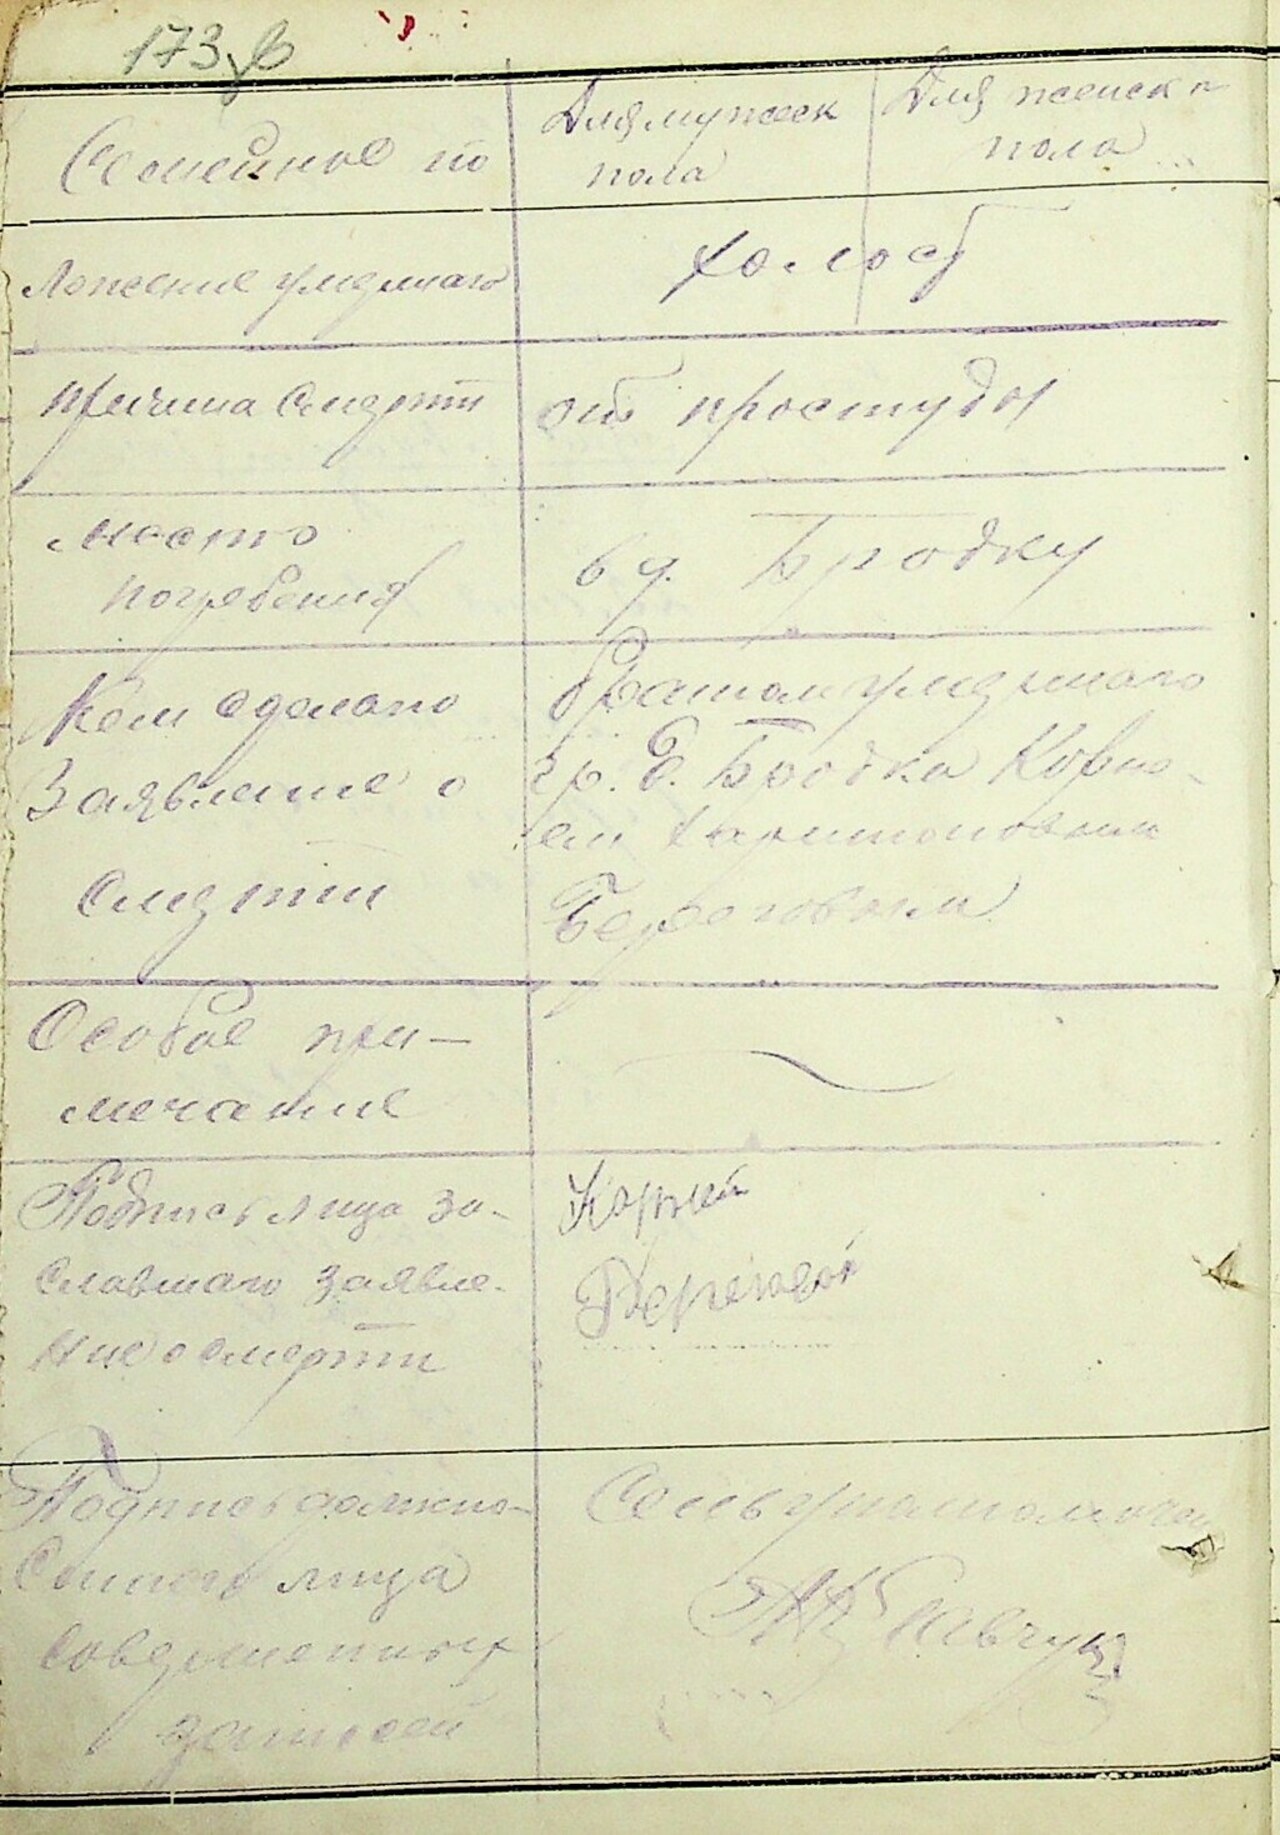 173
Семейное по
Для мужеск
пола
Для женск
пола
ложение умершаго
холост
причина смерти
от простуды
место
погребения
в д. Бродку
Кем сделано
Заявление о
смерти
братом умершаго
гр. д. Бродка Корне-
ем Харитоновым
Береговым
Особое при-
мечание
Подпись лица за-
Корней
Береговой
славшаго заявле-
ние о смерти
Подпись должно-
стного лица
совершеннох
записей
Сельуполномочен
Савчук